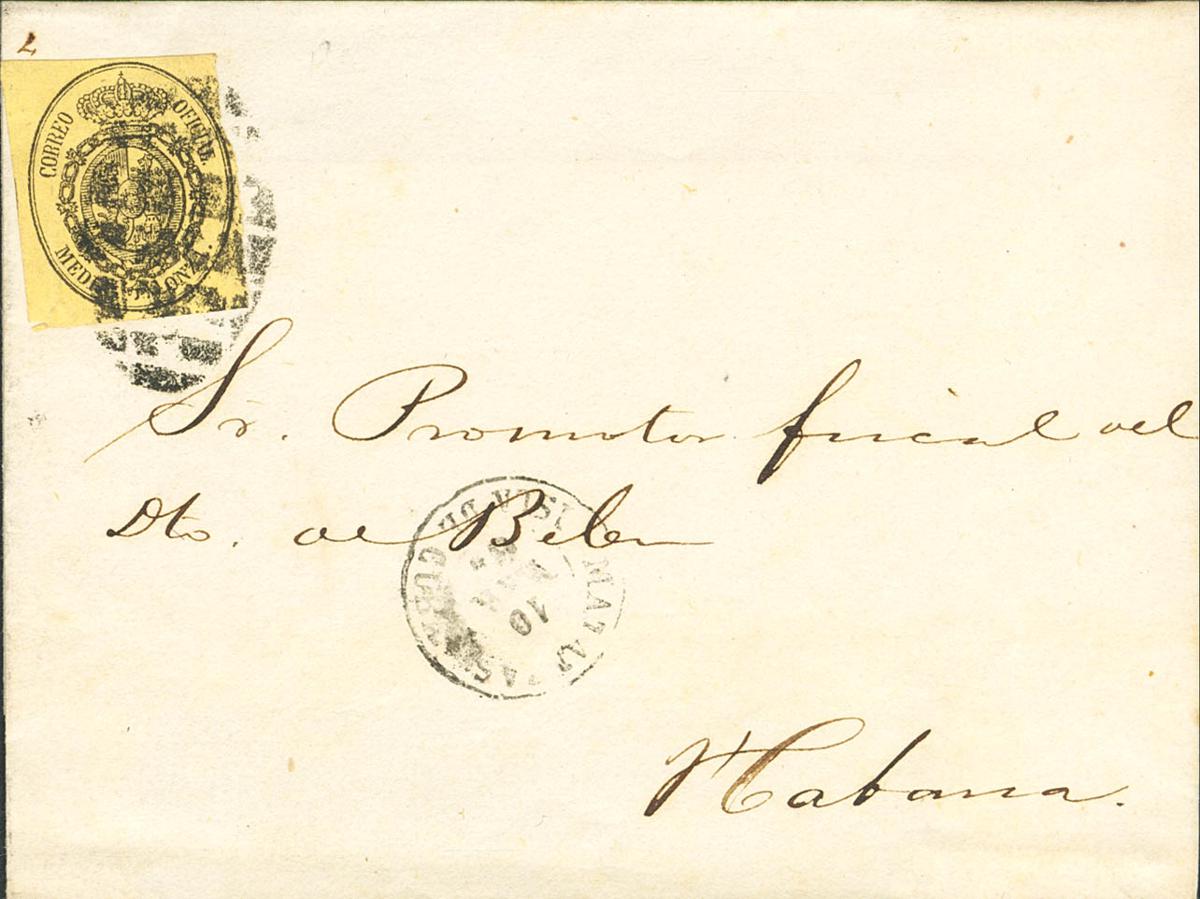 CORREO OFICIAL.
MEDIA ONZA.
Sr. Promotor fiscal del
Dto. de Belen
ISLA DE CUBA
MATANZAS
10
Habana.